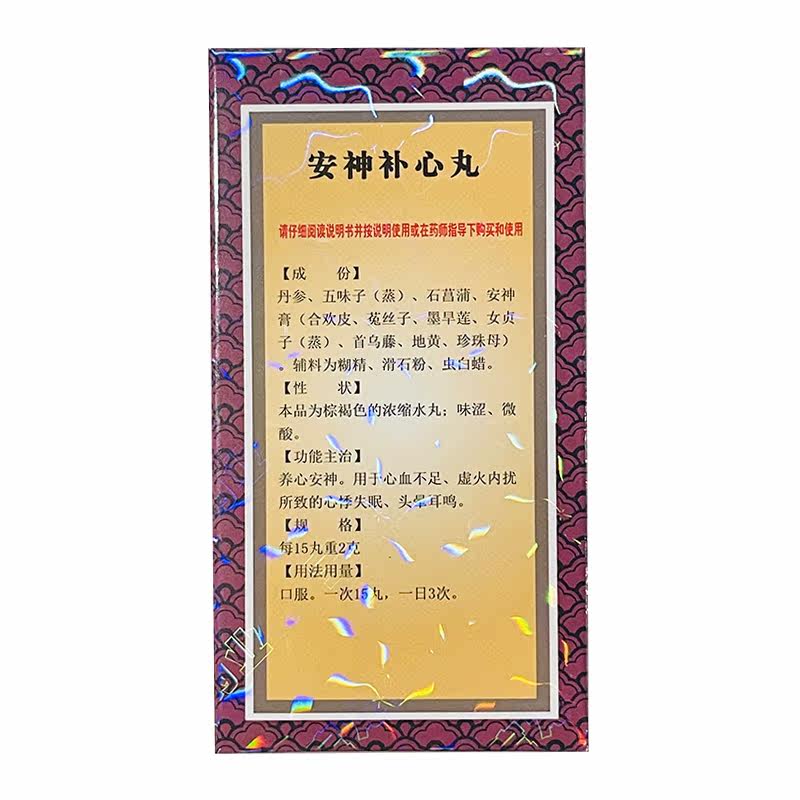 安神补心丸
请仔细阅读说明书并按说明使用或在药师指导下购买和使用
【成　　份】
丹参、五味子（蒸）、石菖蒲、安神
膏（合欢皮、菟丝子、墨旱莲、女贞
子（蒸）、首乌藤、地黄、珍珠母）
。辅料为糊精、滑石粉、虫白蜡。
【性　　状】
本品为棕褐色的浓缩水丸；味涩、微
酸。
【功能主治】
养心安神。用于心血不足、虚火内扰
所致的心悸失眠、头晕耳鸣。
【规　　格】
每15丸重2克
【用法用量】
口服。一次15丸，一日3次。